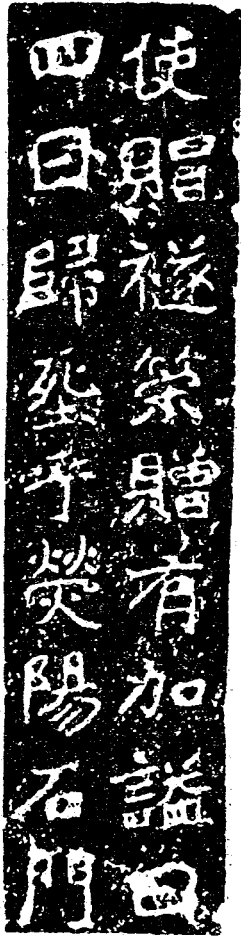 使賵襚策贈有加謚曰
四日歸葬乎熒陽石門